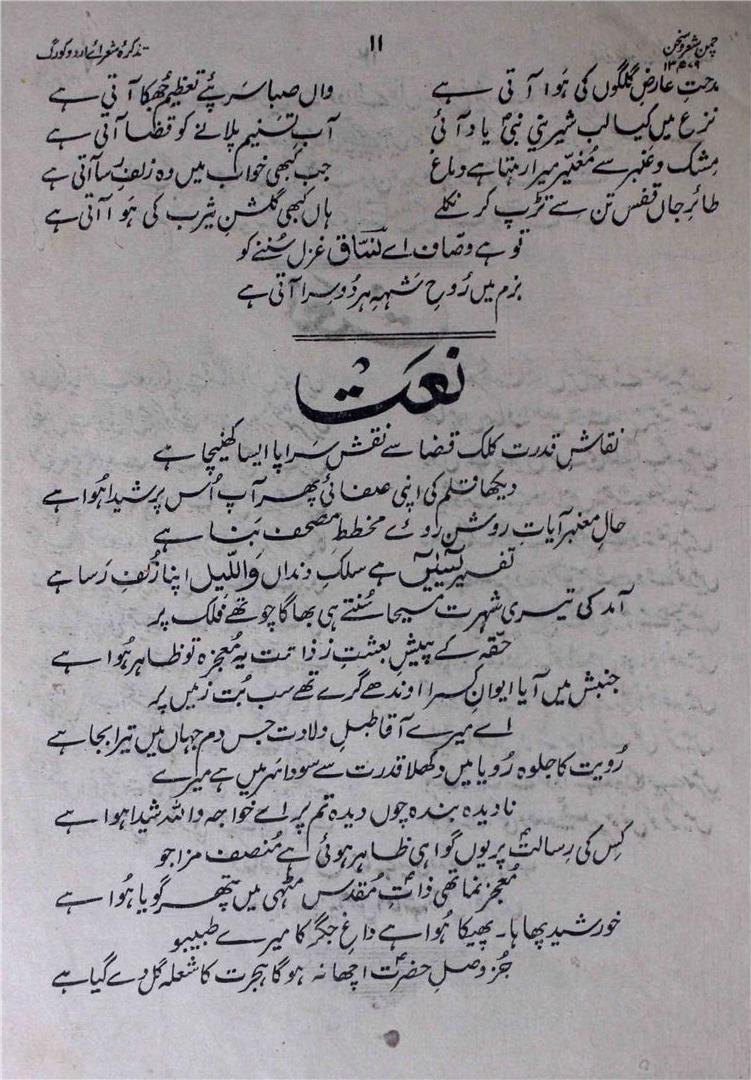 چمن شعر و سخن
۱۳۵۷۹
۱۱
تذکرۂ شعرائے اردو کورگ
مدحتِ عارضِ گلگوں کی ہَوا آتی ہے واں صبا سر پئے تعظیم جُھکا آتی ہے
نزع میں کیا لب شیرینیِ نبیؐ یاد آئی آبِ تسنیم پلانے کو قضا آتی ہے
مِشک و عنبر سے مُغیّر میرا رہتا ہے دماغ جب کبھی خواب میں وہ زلفِ رسا آتی ہے
طائرِ جاں قفسِ تن سے تڑپ کر نکلے ہاں کبھی گلشنِ یثرب کی ہَوا آتی ہے
تو ہے وصّاف اے نسّاق غزل سُننے کو
بزم میں رُوحِ شہہِ ہر دُوسرا آتی ہے
نعت
نقاشِ قدرت کلک قضا سے نقش سَراپا ایسا کھینچا ہے
دیکھا قلم کی اپنی صفائی پھر آپ اُس پر شیدا ہُوا ہے
خالِ معنبر آیاتِ روشن روئے مخطط مصحف بَنا ہے
تفسیر یٰسیٓں ہے سلکِ دنداں وَاللّیل اپنا زُلفِ رَسا ہے
آمد کی تیری شہرت مسیحا سُنتے ہی بھاگا چوتھے فلک پر
حقہ کے پیشِ بعثتِ ز ذاتت یہ مُعجزہ تو ظاہر ہُوا ہے
جنبش میں آیا ایوانِ کسرا اوندھے گرے تھے سب بُت زمیں پر
اے میرے آقا طبلِ ولادت جس دم جہاں میں تیرا بجا ہے
رُویت کا جلوہ رُویا میں دکھلا قدرت سے سودا سَر میں ہے میرے
نادیدہ بندہ چوں دیدہ تم پر اے خواجہ واللہ شیدا ہوا ہے
کِس کی رِسالتؐ پر یوں گواہی ظاہر ہوئی ہے مُنصف مزاجو
مُعجز نما تھی ذاتِ مُقدس مٹھی میں پتھر گویا ہُوا ہے
خورشید پھاہا۔ پھیکا ہُوا ہے داغِ جگر کا میرے طبیبو
جُز وصلِ حضرتؐ اچھا نہ ہوگا ہجرت کا شعلہ گُل دے گیا ہے